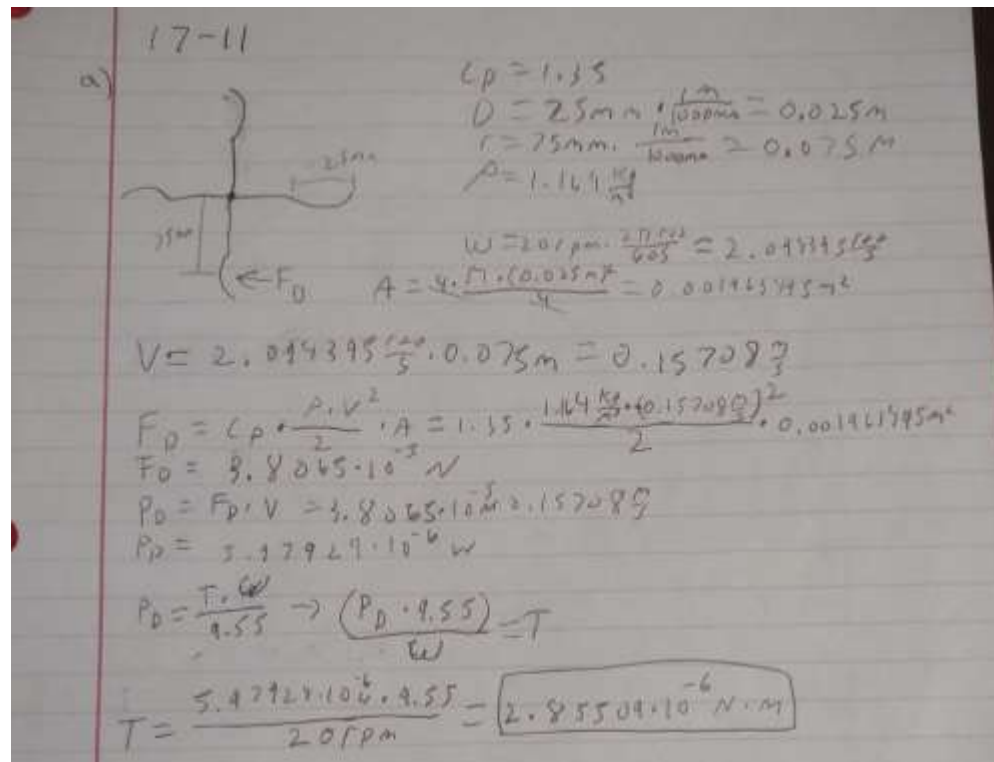 17-11
a)
CD = 1.35
D = 25mm · 1m/1000mm = 0.025m
25mm
r = 75mm · 1m/1000mm = 0.075m
ρ = 1.164 kg/m³
75mm
ω = 20rpm · 2π rad/60s = 2.094395 rad/s
← FD
A = 4 · π · (0.025m)²/4 = 0.001963495m²
V = 2.094395 rad/s · 0.075m = 0.15708 m/s
FD = CD · ρ·V²/2 · A = 1.35 · 1.164 kg/m³ · (0.15708 m/s)²/2 · 0.001963495m²
FD = 3.8065·10⁻⁵ N
PD = FD · V = 3.8065·10⁻⁵ N · 0.15708 m/s
PD = 5.97927·10⁻⁶ W
PD = T·ω/9.55 → (PD · 9.55)/ω = T
T = 5.97927·10⁻⁶ · 9.55/20rpm = 2.85509·10⁻⁶ N·m